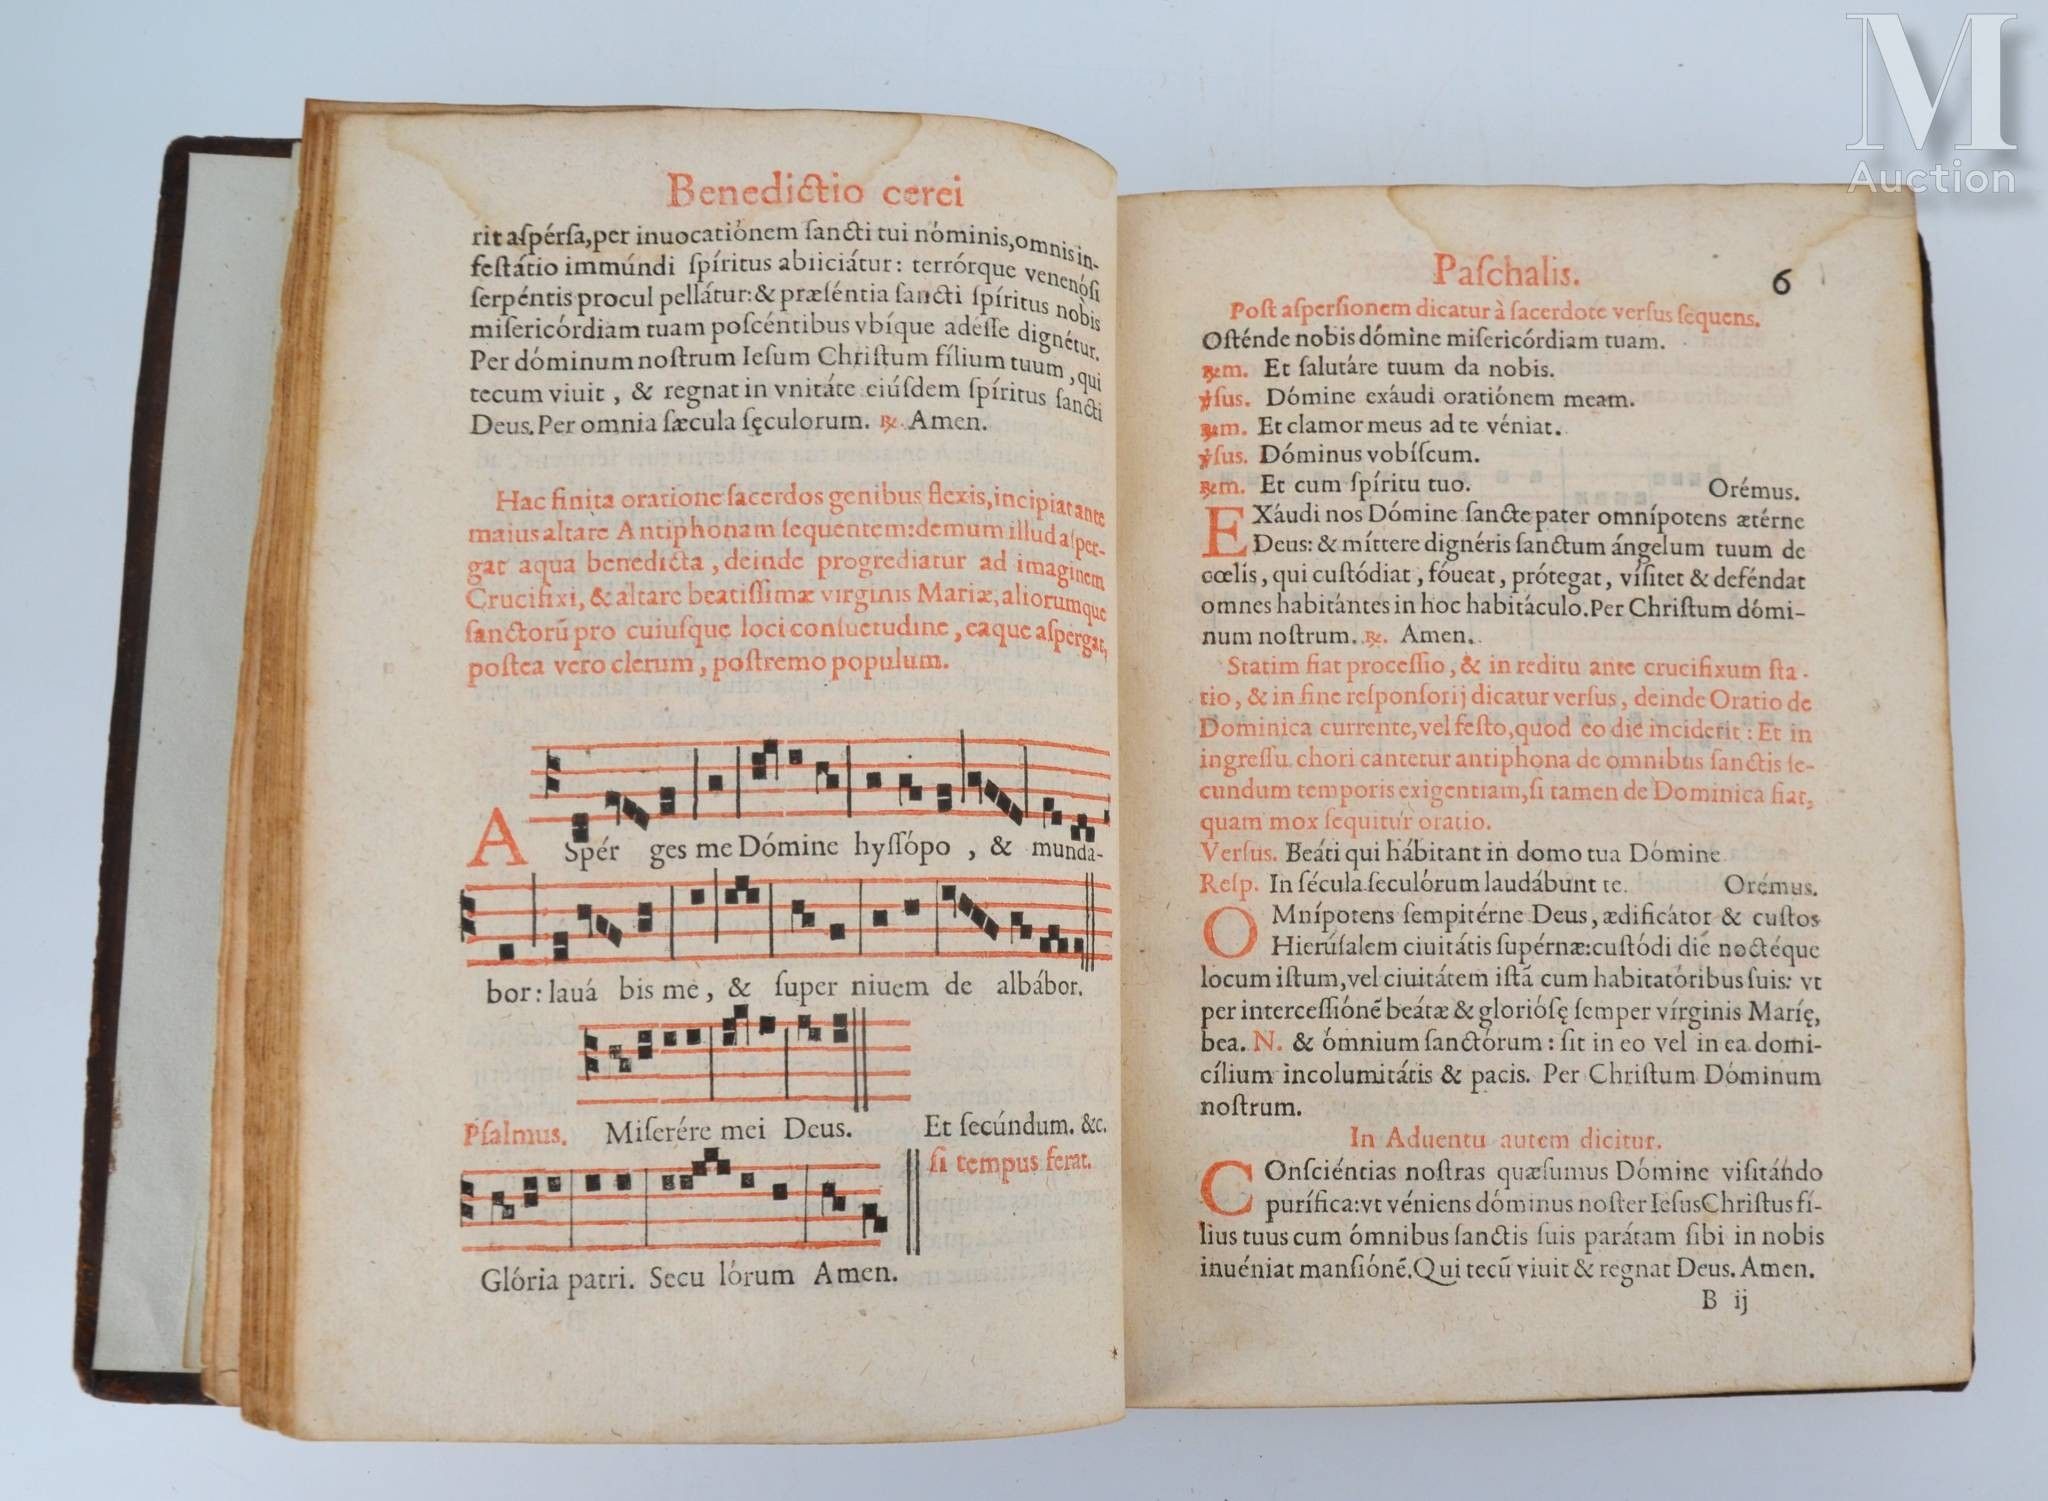 Benedictio cerei
rit aſpérſa,per inuocatiónem ſancti tui nóminis,omnis in-
feſtátio immúndi ſpíritus abiiciátur: terrórque venenóſi
ſerpéntis procul pellátur:& præſéntia ſancti ſpíritus nobis
miſericórdiam tuam poſcéntibus vbíque adeſſe dignétur.
Per dóminum noſtrum Ieſum Chriſtum fílium tuum , qui
tecum viuit , & regnat in vnitáte eiúſdem ſpíritus ſancti
Deus. Per omnia ſæcula ſęculorum. ℞. Amen.
Hac finita oratione ſacerdos genibus flexis, incipiat ante
maius altare Antiphonam ſequentem: demum illud aſper-
gat aqua benedicta , deinde progrediatur ad imaginem
Crucifixi, & altare beatiſſimæ virginis Mariæ, aliorumque
ſanctorū pro cuiuſque loci conſuetudine , eaque aſpergat,
poſtea vero clerum , poſtremo populum.
ASpér ges me Dómine hyſſópo , & munda-
bor: lauá bis me , & ſuper niuem de albábor.
Pſalmus. Miſerére mei Deus. Et ſecúndum. &c.
ſi tempus ferat.
Glória patri. Secu lórum Amen.
Paſchalis. 6
Poſt aſperſionem dicatur à ſacerdote verſus ſequens.
Oſténde nobis dómine miſericórdiam tuam.
℞m. Et ſalutáre tuum da nobis.
℣ſus. Dómine exáudi oratiónem meam.
℞m. Et clamor meus ad te véniat.
℣ſus. Dóminus vobíſcum.
℞m. Et cum ſpíritu tuo. Orémus.
EXáudi nos Dómine ſancte pater omnípotens ætérne
Deus: & míttere dignéris ſanctum ángelum tuum de
cœlis , qui cuſtódiat , fóueat , prótegat , víſitet & deféndat
omnes habitántes in hoc habitáculo. Per Chriſtum dómi-
num noſtrum. ℞. Amen.
Statim fiat proceſſio , & in reditu ante crucifixum ſta-
tio , & in fine reſponſorij dicatur verſus , deinde Oratio de
Dominica currente, vel feſto, quod eo die inciderit : Et in
ingreſſu chori cantetur antiphona de omnibus ſanctis ſe-
cundum temporis exigentiam, ſi tamen de Dominica fiat,
quam mox ſequitur oratio.
Verſus. Beáti qui hábitant in domo tua Dómine
Reſp. In ſécula ſeculórum laudábunt te. Orémus.
OMnípotens ſempitérne Deus , ædificátor & cuſtos
Hierúſalem ciuitátis ſupérnæ: cuſtódi die noctéque
locum iſtum, vel ciuitátem iſtā cum habitatóribus ſuis: vt
per interceſſiónē beátæ & glorióſę ſemper vírginis Marię,
bea. N. & ómnium ſanctórum : ſit in eo vel in ea domi-
cílium incolumitátis & pacis. Per Chriſtum Dóminum
noſtrum.
In Aduentu autem dicitur.
COnſciéntias noſtras quæſumus Dómine viſitándo
purífica: vt véniens dóminus noſter Ieſus Chriſtus fí-
lius tuus cum ómnibus ſanctis ſuis parátam ſibi in nobis
inuéniat manſiónē. Qui tecū viuit & regnat Deus. Amen.
B ij
M
Auction